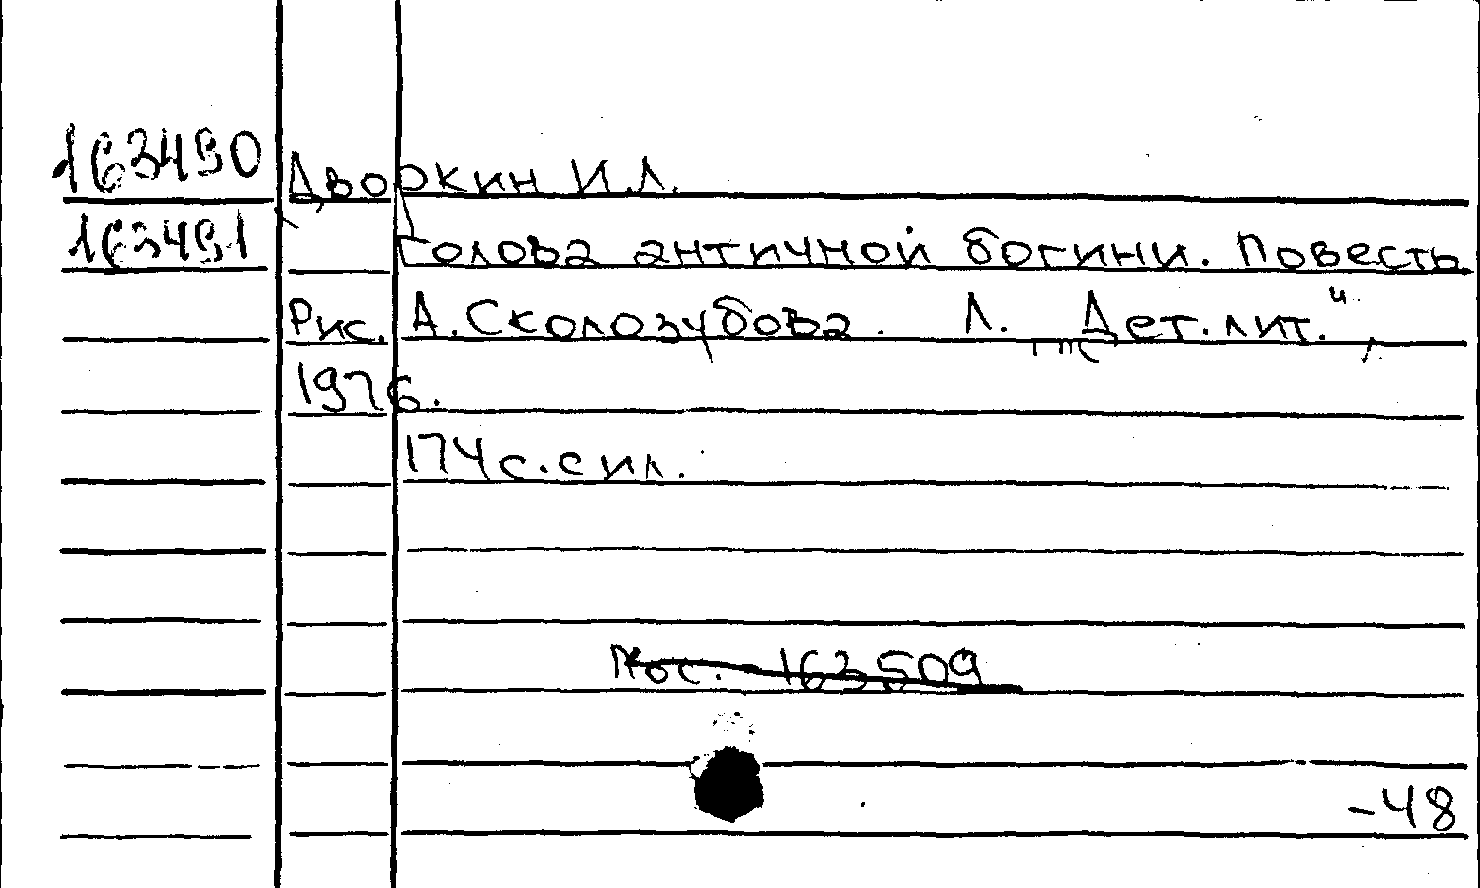 163490 Дворкин И.Л.
163491 Голова античной богини. Повесть
Рис. А. Сколозубова. Л. „Дет. лит.",
1976.
174 с. с ил.
Пос. 163509
-48